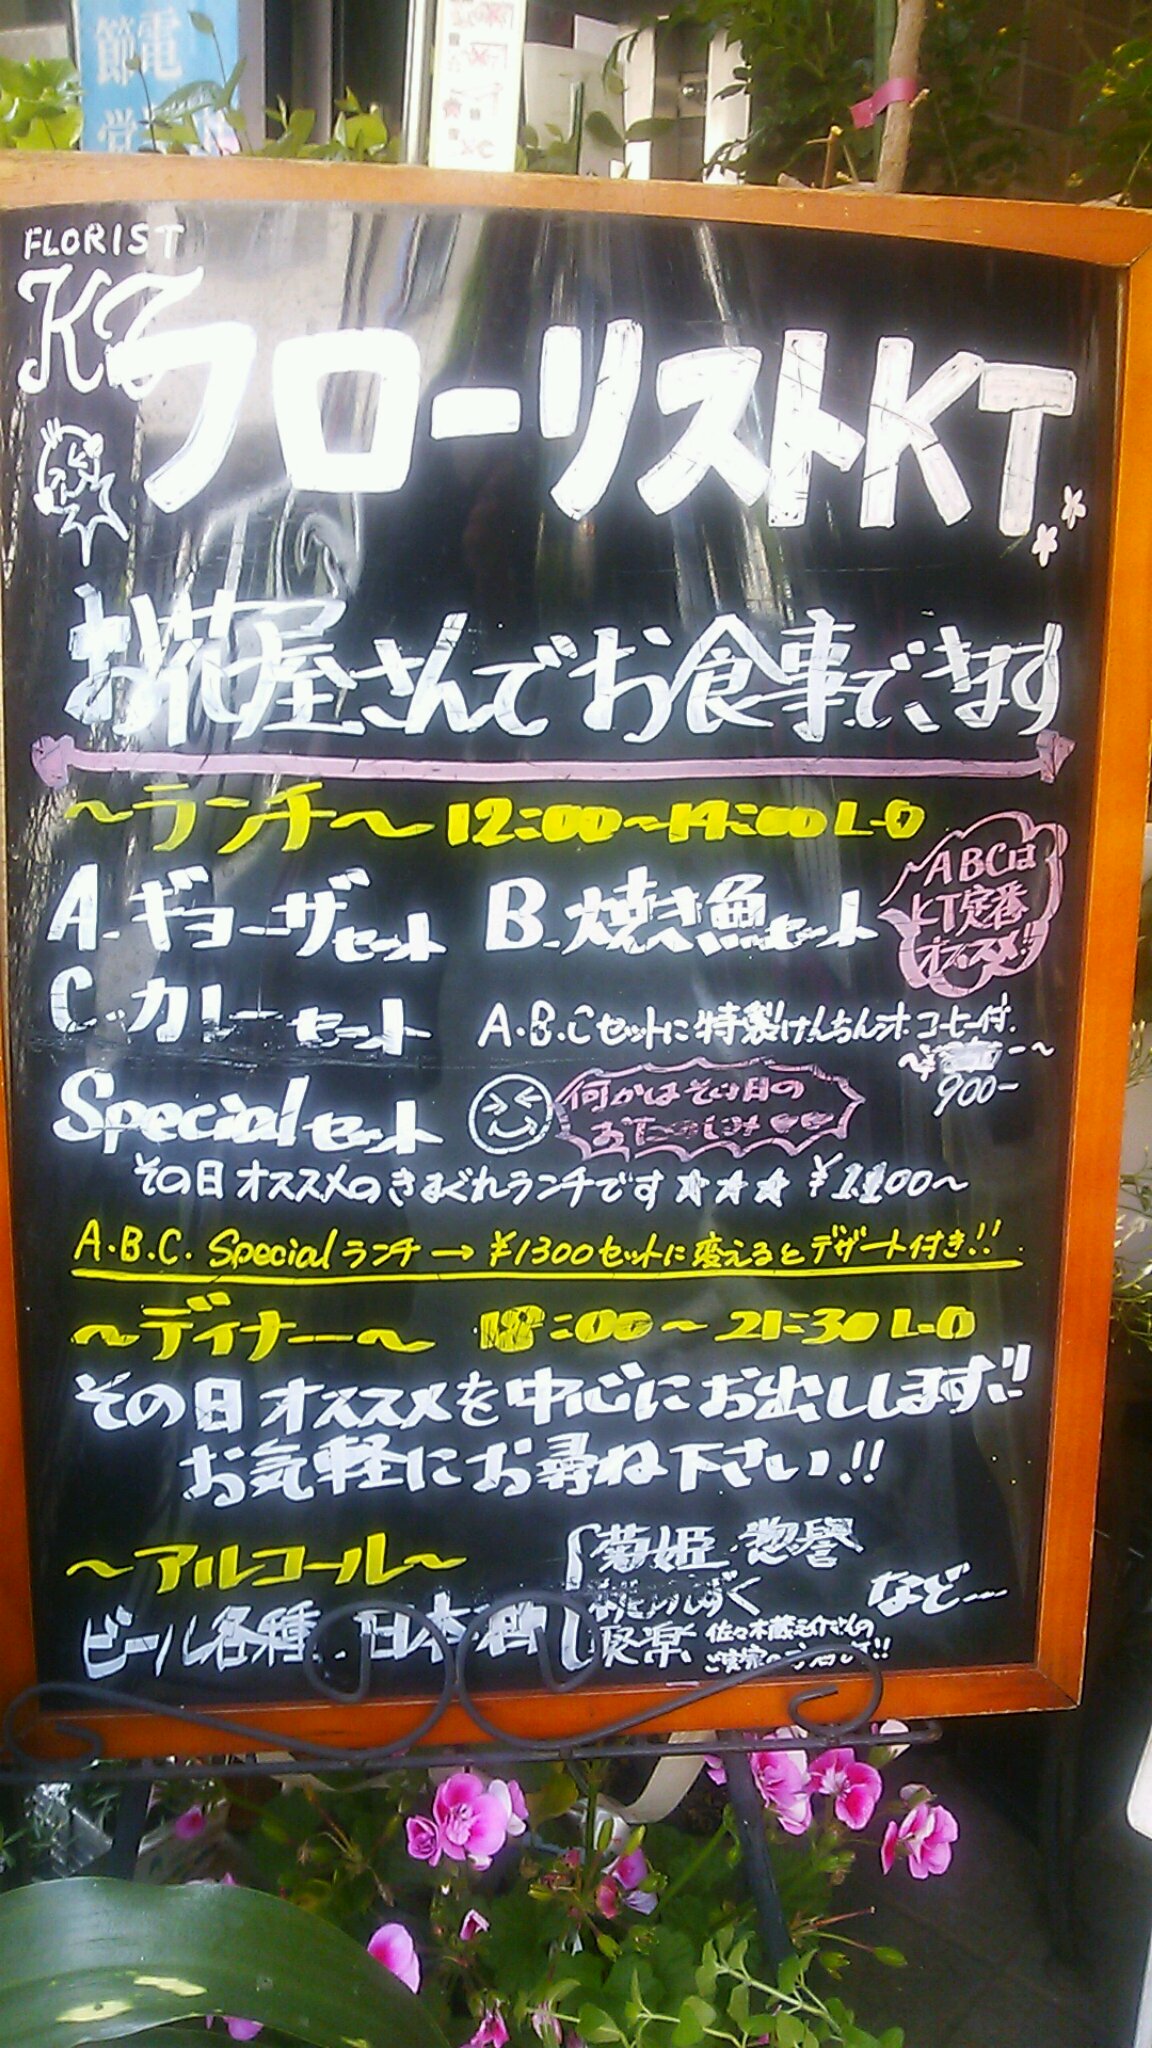 節電
営
FLORIST
KT
フローリストKT
お花屋さんでお食事できます
〜ランチ〜 12:00〜14:00 L-O
A.ギョーザセット B.焼き魚セット
ABCは
KT定番
オススメ!!
C.カレーセット
A.B.Cセットに特製けんちん汁・コーヒー付.
900-
Specialセット
何かはその日の
おたのしみ♥♥
その日オススメのきまぐれランチです☆★★ ¥1100〜
A.B.C. Specialランチ → ¥1300セットに変えるとデザート付き!!
〜ディナー〜 18:00〜21:30 L-O
その日オススメを中心にお出しします!!
お気軽にお尋ね下さい!!
〜アルコール〜
ビール各種.. 日本酒
菊姫 惣誉
など…
佐々木蔵之介さんの